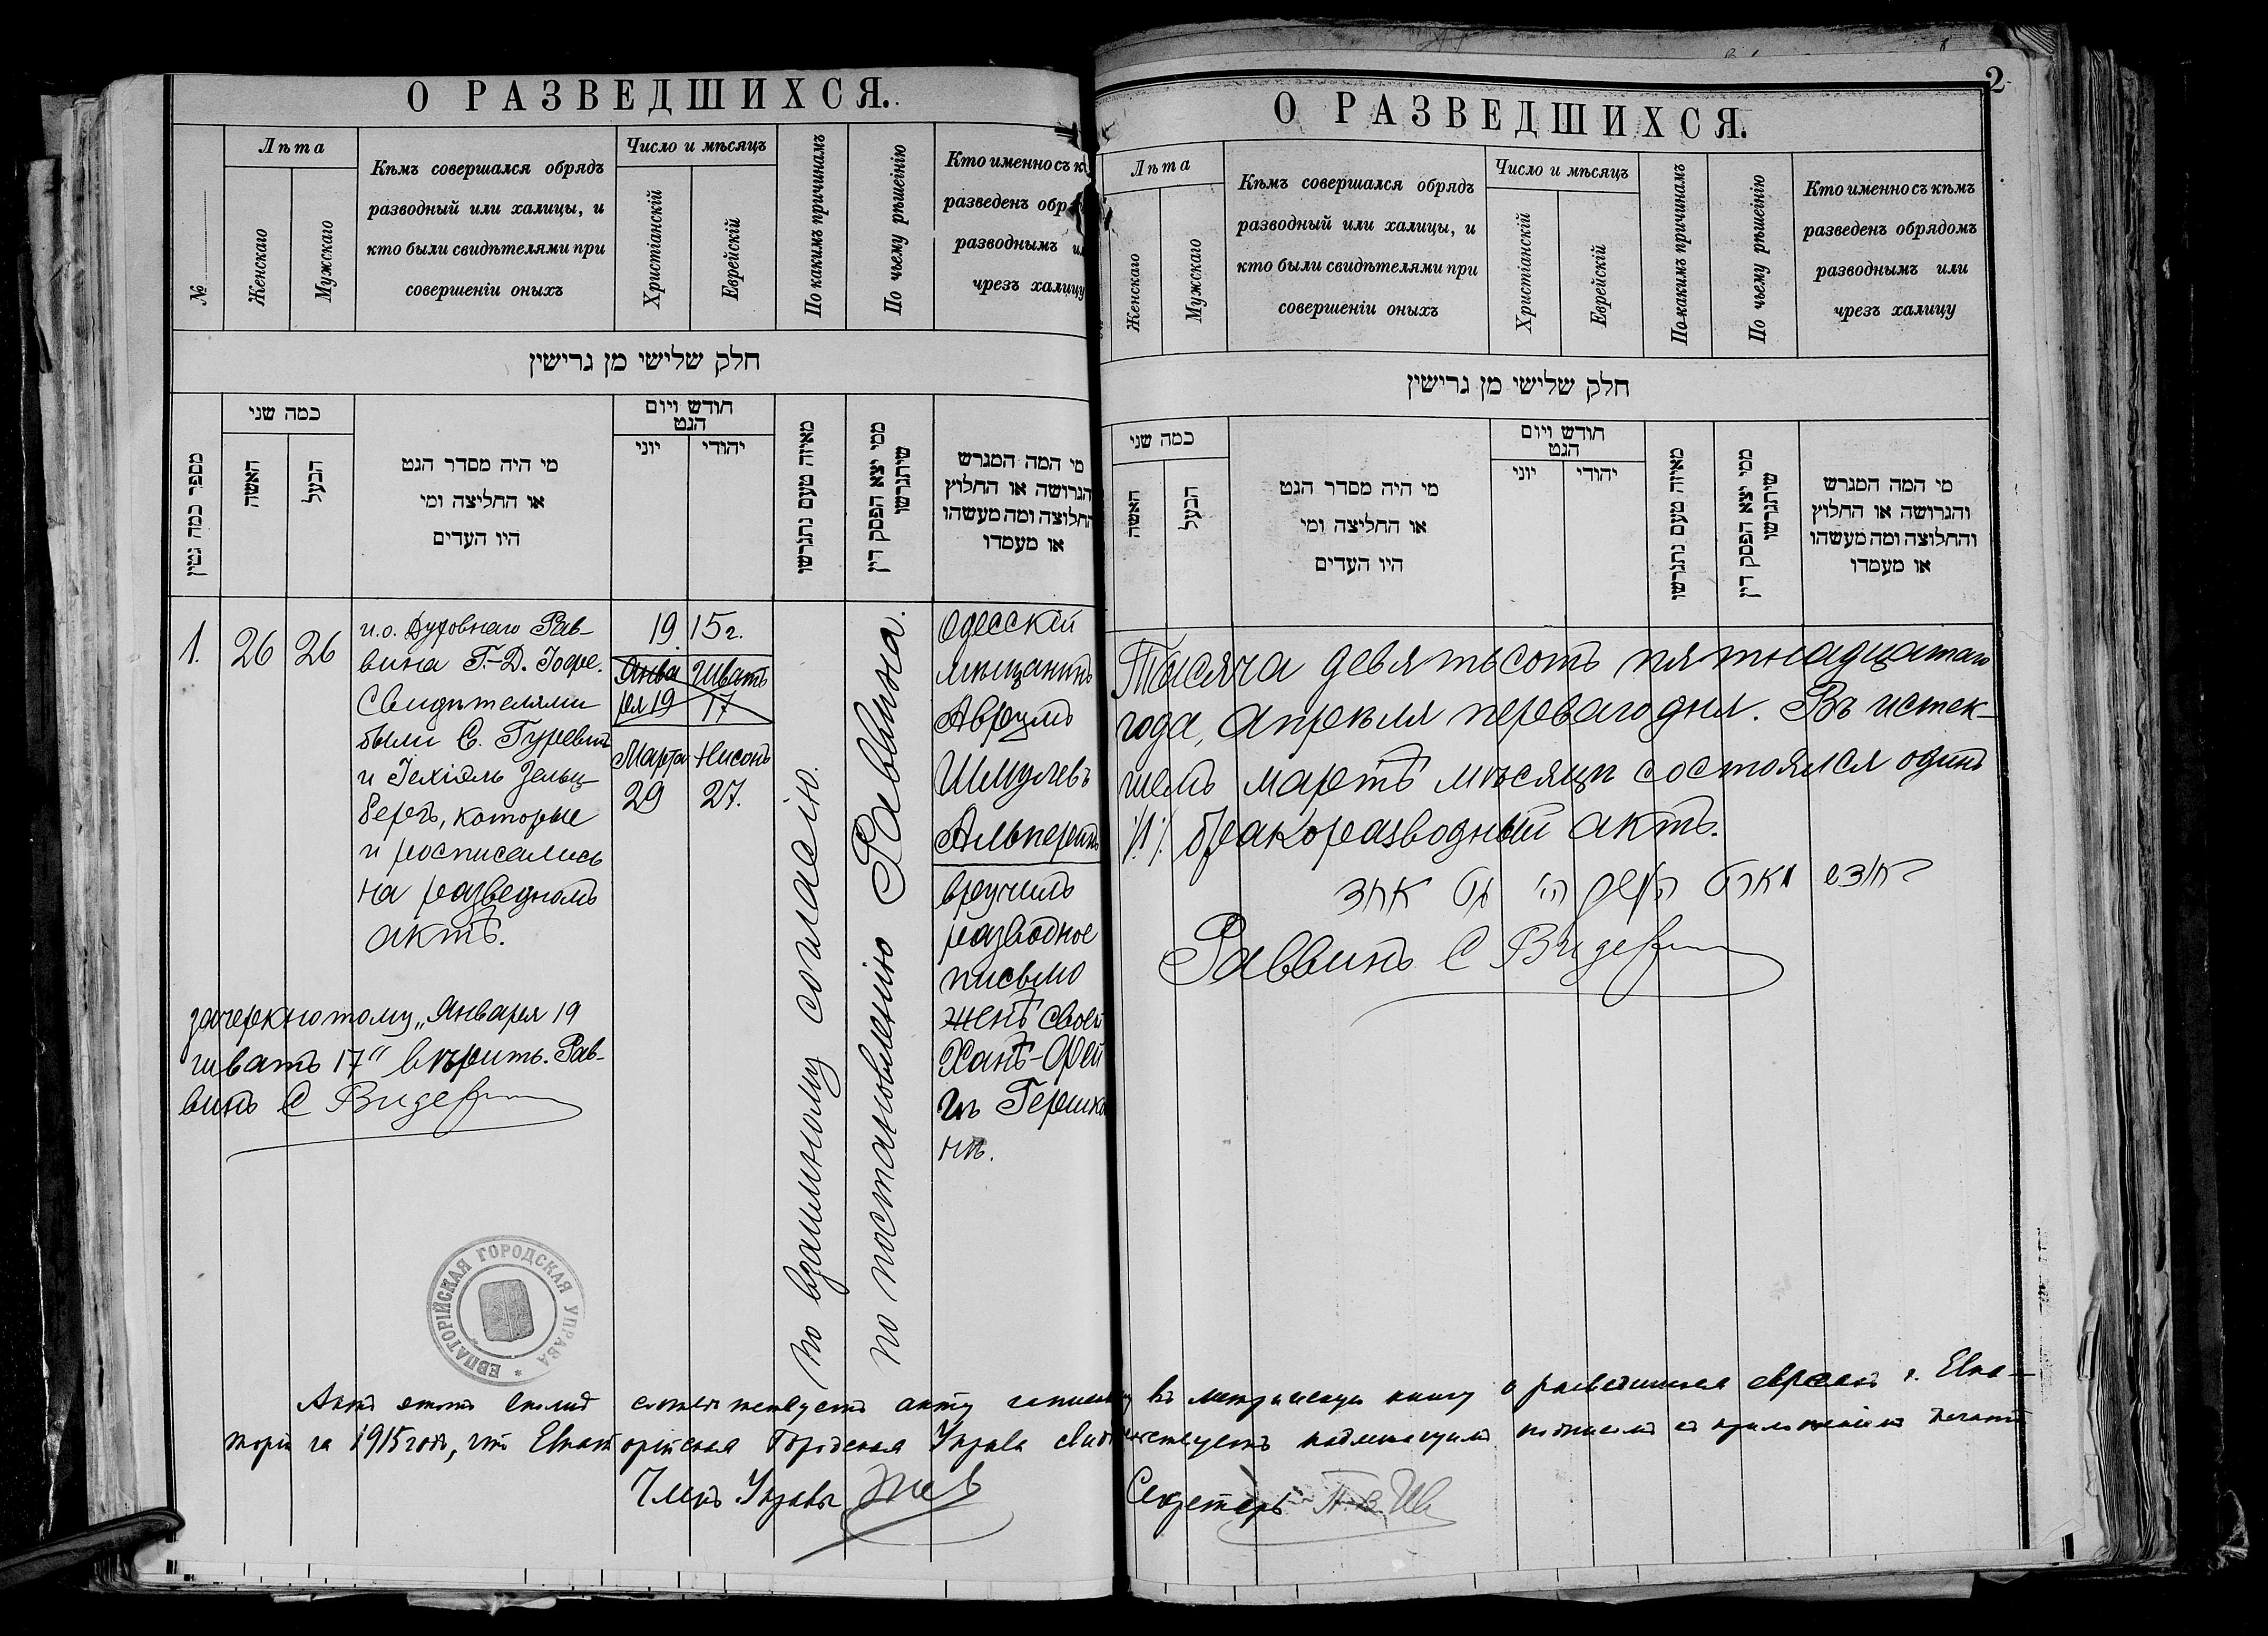 О РАЗВЕДШИХСЯ.
№
Лѣта
Женскаго
Мужскаго
Кѣмъ совершался обрядъ
разводный или халицы, и
кто были свидѣтелями при
совершеніи оныхъ
Число и мѣсяцъ
Христіанскій
Еврейскій
По какимъ причинамъ
По чьему рѣшенію
Кто именно съ к
разведенъ обр
разводнымъ и
чрезъ халицу
חלק שלישי מן גרישין
מספר כמה גטין
כמה שני
האשה
הבעל
מי היה מסדר הגט
או החליצה ומי
היו העדים
חודש ויום
הגט
יוני
יהודי
מאיזה טעם נתגרשו
ממי יצא הפסק דין
שיתגרשו
מי המה המגרש
הגרושה או החלוץ
החלוצה ומה מעשהו
או מעמדו
1.
26
26
и.о. Духовнаго Рав-
вина Г.-Д. Іоффе.
Свидѣтелями
были С. Гуревичъ
и Іехіэль Зельц-
беръ, которые
и росписались
на разводномъ
актѣ.
1915 г.
Янва Шватъ
ря 19 17
Марта Нисонъ
29 27.
по взаимному согласію.
по постановленію Раввина.
Одесскій
мѣщанинъ
Аврумъ
Шмулевъ
Альперинъ
вручилъ
разводное
письмо
женѣ своей
Ханѣ-Фей
гѣ Гершко
нѣ.
зачеркнотому „Января 19
шватъ 17" вѣрить. Рав-
винъ С
ЕВПАТОРІЙСКАЯ ГОРОДСКАЯ УПРАВА
2
О РАЗВЕДШИХСЯ.
Лѣта
Женскаго
Мужскаго
Кѣмъ совершался обрядъ
разводный или халицы, и
кто были свидѣтелями при
совершеніи оныхъ
Число и мѣсяцъ
Христіанскій
Еврейскій
По какимъ причинамъ
По чьему рѣшенію
Кто именно съ кѣмъ
разведенъ обрядомъ
разводнымъ или
чрезъ халицу
חלק שלישי מן גרישין
כמה שני
האשה
הבעל
מי היה מסדר הגט
או החליצה ומי
היו העדים
חודש ויום
הגט
יוני
יהודי
מאיזה טעם נתגרשו
ממי יצא הפסק דין
שיתגרשו
מי המה המגרש
והגרושה או החלוץ
והחלוצה ומה מעשהו
או מעמדו
Тысяча девятьсотъ пятнадцатаго
года, апреля перваго дня. Въ истек-
шемъ мартѣ мѣсяцѣ состоялся одинъ
/1/ бракоразводный актъ.
Раввинъ С
Актъ этотъ вполнѣ соответствуетъ акту въ метрическую книгу о разведшихся евреяхъ г. Евпа-
торіи за 1915 годъ, что Евпаторійская Городская Управа свидѣтельствуетъ надлежащимъ подписомъ съ приложеніемъ печати
Членъ Управы
Секретарь